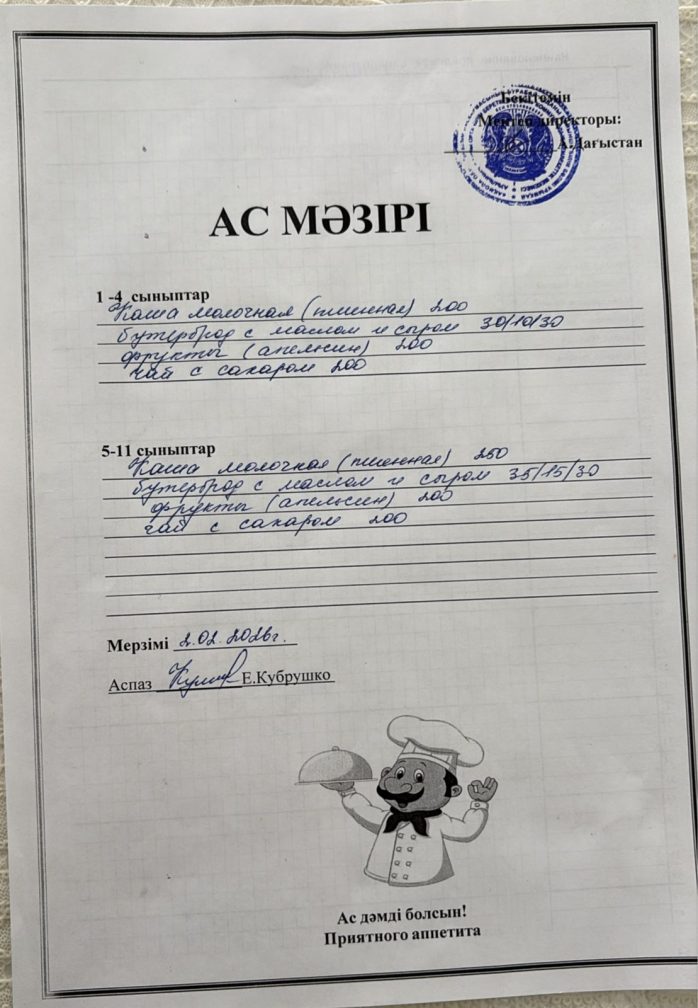 Бекітемін
Мектеп директоры:
А.Дағыстан
АС МӘЗІРІ
1 -4 сыныптар
Каша молочная (пшенная) 200
бутерброд с маслом и сыром 30/10/30
фрукты (апельсин) 200
чай с сахаром 200
5-11 сыныптар
Каша молочная (пшенная) 250
бутерброд с маслом и сыром 35/15/30
фрукты (апельсин) 200
чай с сахаром 200
Мерзімі 2.02.2026г.
Аспаз Е.Кубрушко
Ас дәмді болсын!
Приятного аппетита